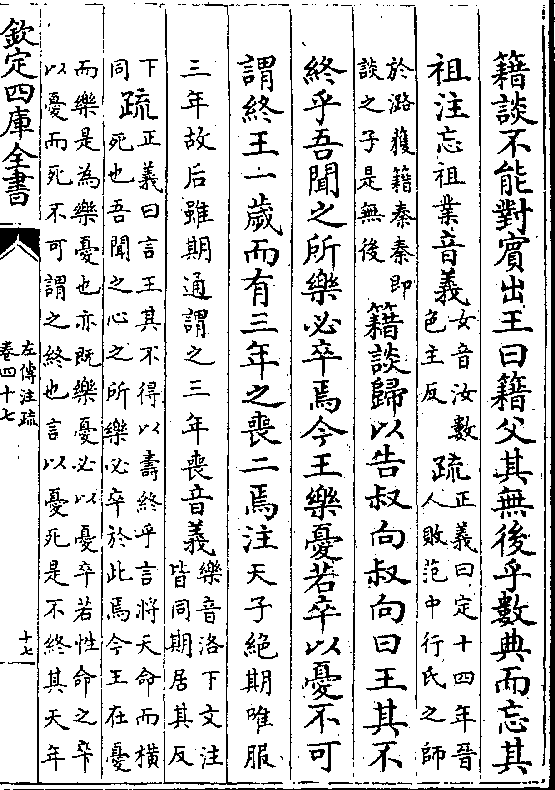 籍談不能對賓出王曰籍父其無後乎數典而忘其
祖注忘祖業音義女音汝數
色主反疏正義曰定十四年晉
人敗范中行氏之師
於潞獲籍秦秦即
談之子是無後籍談歸以告叔向叔向曰王其不
終乎吾聞之所樂必卒焉今王樂憂若卒以憂不可
謂終王一歲而有三年之喪二焉注天子絶期唯服
三年故后雖期通謂之三年喪音義樂音洛下文注
皆同期居其反
下同疏正義曰言王其不得以壽終乎言將夭命而橫
死也吾聞之心之所樂必卒於此焉今王在憂
而樂是為樂憂也亦既樂憂必以憂卒若性命之卒
以憂而死不可謂之終也言以憂死是不終其天年
欽定四庫全書
左傳注疏
卷四十七
十七